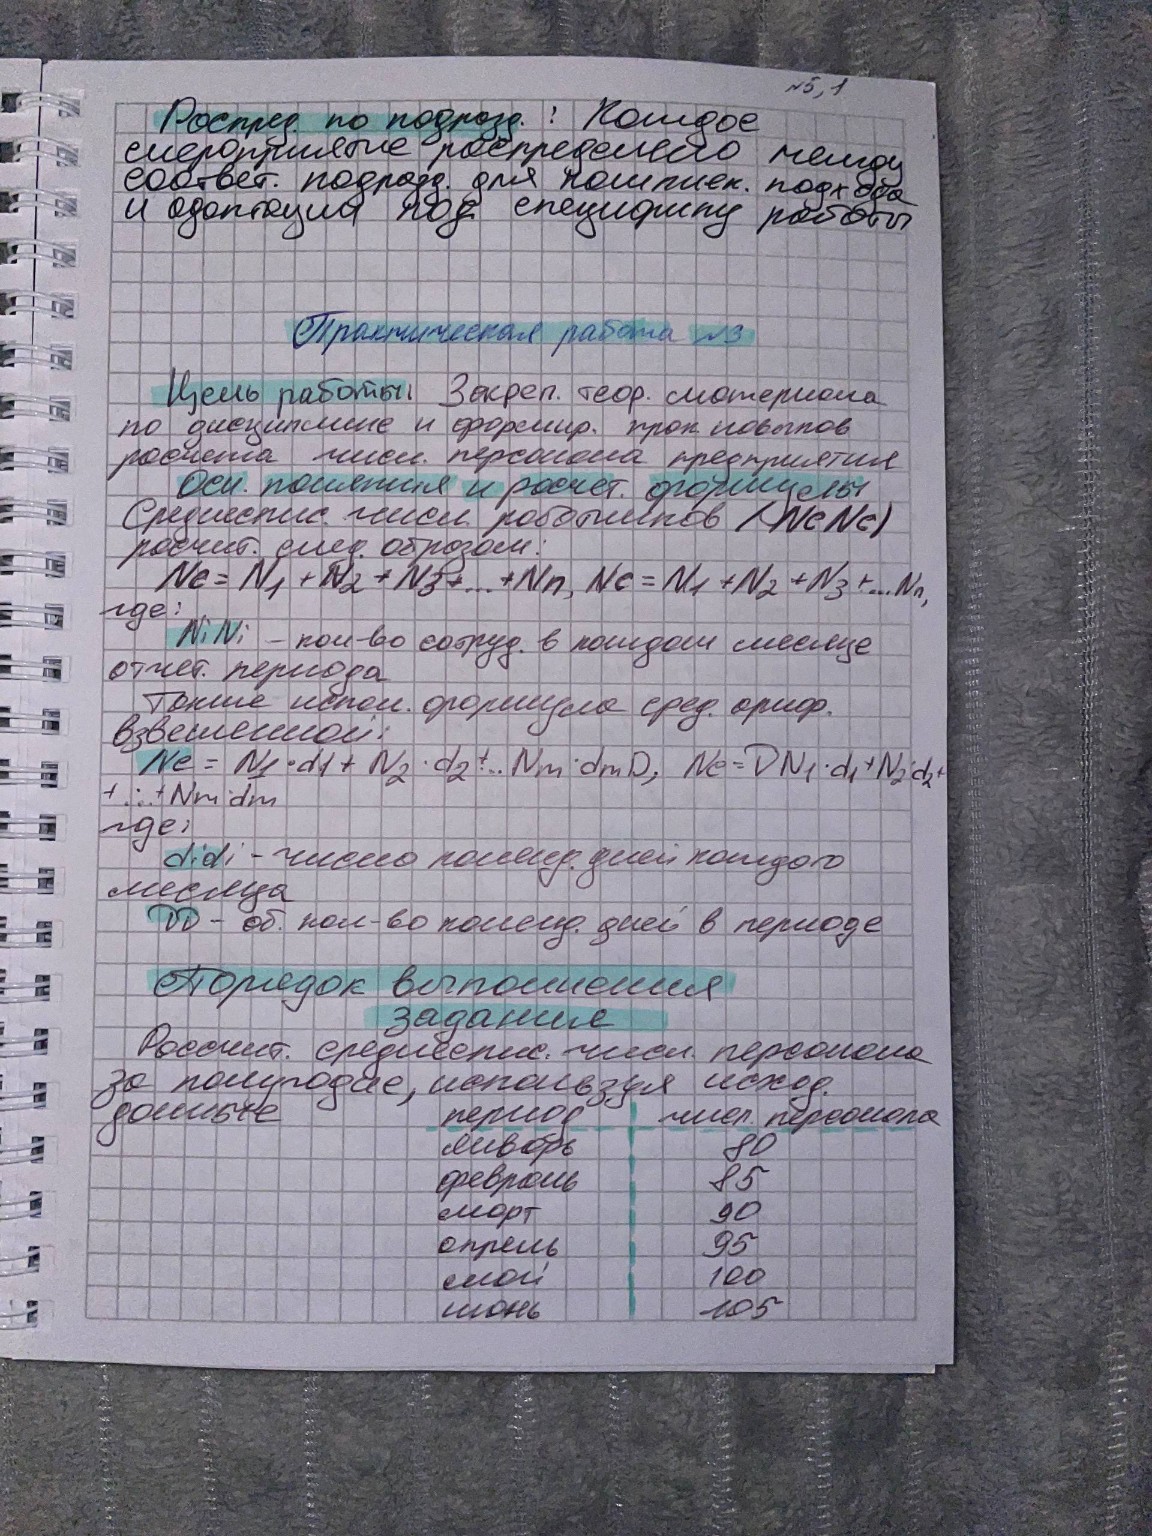 №5,1
Распред. по подразд.: Каждое
мероприятие распределено между
соответ. подразд. для комплек. подхода
и адаптации под специфику работы
Практическая работа №3
Цель работы: Закреп. теор. материала
по дисциплине и формир. прак. навыков
расчета числ. персонала предприятия
Осн. понятия и расчет. формулы
Среднеспис. числ. работников (NcNc)
расчит. след. образом:
Nc = N1 + N2 + N3 + ... + Nn, Nc = N1 + N2 + N3 + ... Nn,
где:
NiNi - кол-во сотруд. в каждом месяце
отчет. периода
Также испол. формула сред. ариф.
взвешенной:
Nc = N1·d1 + N2·d2 + ... Nm·dmD, Nc = DN1·d1 + N2·d2 +
+ ... + Nm·dm
где:
didi - число календ. дней каждого
месяца
DD - об. кол-во календ. дней в периоде
Порядок выполнения
задания
Рассчит. среднеспис. числ. персонала
за полугодие, используя исход.
данные период числ. персонала
январь 80
февраль 85
март 90
апрель 95
май 100
июнь 105